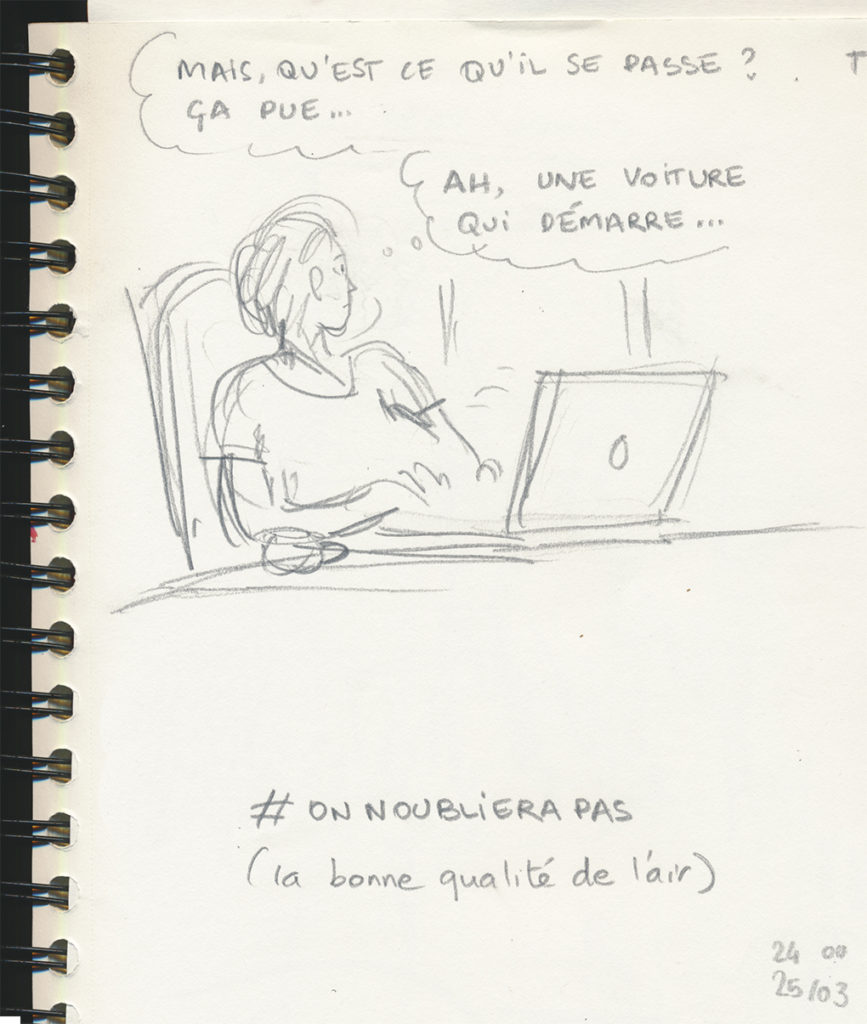 MAIS, QU'EST CE QU'IL SE PASSE ?
ÇA PUE...
AH, UNE VOITURE
QUI DÉMARRE...
# ON NOUBLIERA PAS
(la bonne qualité de l'air)
24 00
25/03